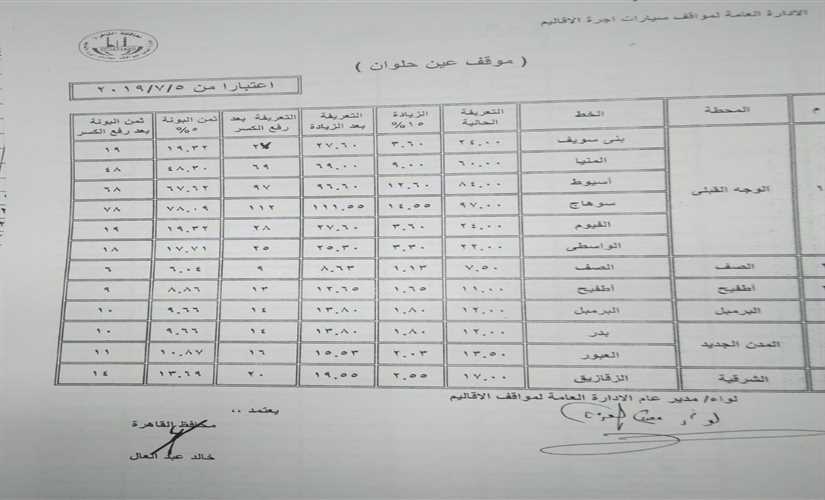 الادارة العامة لمواقف سيارات اجرة الاقاليم
( موقف عين حلوان )
اعتبارا من ٢٠١٩/٧/٥
م المحطة الخط التعريفة الحالية الزيادة ١٥% التعريفة بعد الزيادة التعريفة بعد رفع الكسر ثمن البونة ٥% ثمن البونة بعد رفع الكسر
١ الوجه القبلى بنى سويف ٢٤.٠٠ ٣.٦٠ ٢٧.٦٠ ١٩.٣٢ ١٩
المنيا ٦٠.٠٠ ٩.٠٠ ٦٩.٠٠ ٦٩ ٤٨.٣٠ ٤٨
أسيوط ٨٤.٠٠ ١٢.٦٠ ٩٦.٦٠ ٩٧ ٦٧.٦٢ ٦٨
سوهاج ٩٧.٠٠ ١٤.٥٥ ١١١.٥٥ ١١٢ ٧٨.٠٩ ٧٨
الفيوم ٢٤.٠٠ ٣.٦٠ ٢٧.٦٠ ٢٨ ١٩.٣٢ ١٩
الواسطى ٢٢.٠٠ ٣.٣٠ ٢٥.٣٠ ٢٥ ١٧.٧١ ١٨
الصف الصف ٧.٥٠ ١.١٣ ٨.٦٣ ٩ ٦.٠٤ ٦
أطفيح أطفيح ١١.٠٠ ١.٦٥ ١٢.٦٥ ١٣ ٨.٨٦ ٩
البرميل البرميل ١٢.٠٠ ١.٨٠ ١٣.٨٠ ١٤ ٩.٦٦ ١٠
المدن الجديد بدر ١٢.٠٠ ١.٨٠ ١٣.٨٠ ١٤ ٩.٦٦ ١٠
العبور ١٣.٥٠ ٢.٠٣ ١٥.٥٣ ١٦ ١٠.٨٧ ١١
الشرقية الزقازيق ١٧.٠٠ ٢.٥٥ ١٩.٥٥ ٢٠ ١٣.٦٩ ١٤
لواء/ مدير عام الادارة العامة لمواقف الاقاليم
يعتمد ،،
محافظ القاهرة
خالد عبد العال